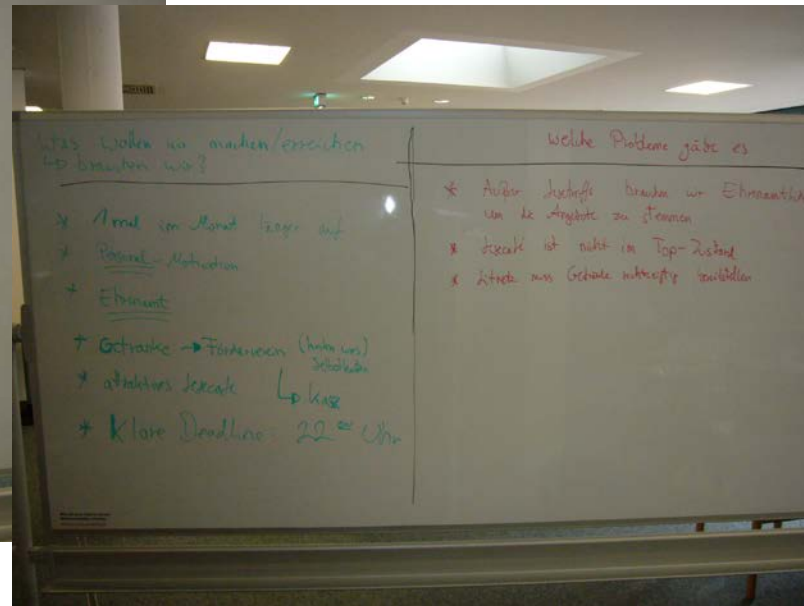 Was wollen wir machen/erreichen
brauchen wir?
* 1 mal im Monat länger auf
* Personal-Motivation
* Ehrenamt
* Getränke → Förderverein
* attraktives Lesecafé
* Klare Deadline: 22 Uhr
welche Probleme gäbe es
* Außer brauchen wir Ehrenamtliche
um die Angebote zu stemmen
* Lesecafé ist nicht im Top-Zustand
* muss Getränke bereitstellen